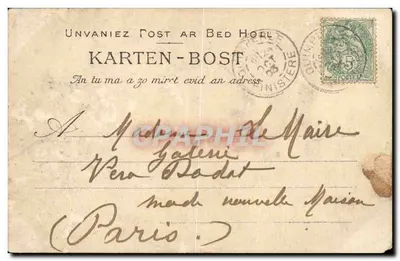 Unvaniez Post ar Bed Holl
KARTEN-BOST
An tu ma a zo miret evid an adress
A Madame Le Maire
Galerie
Vero Dodat
made nouvelle Maison
(Paris.)
FINISTERE